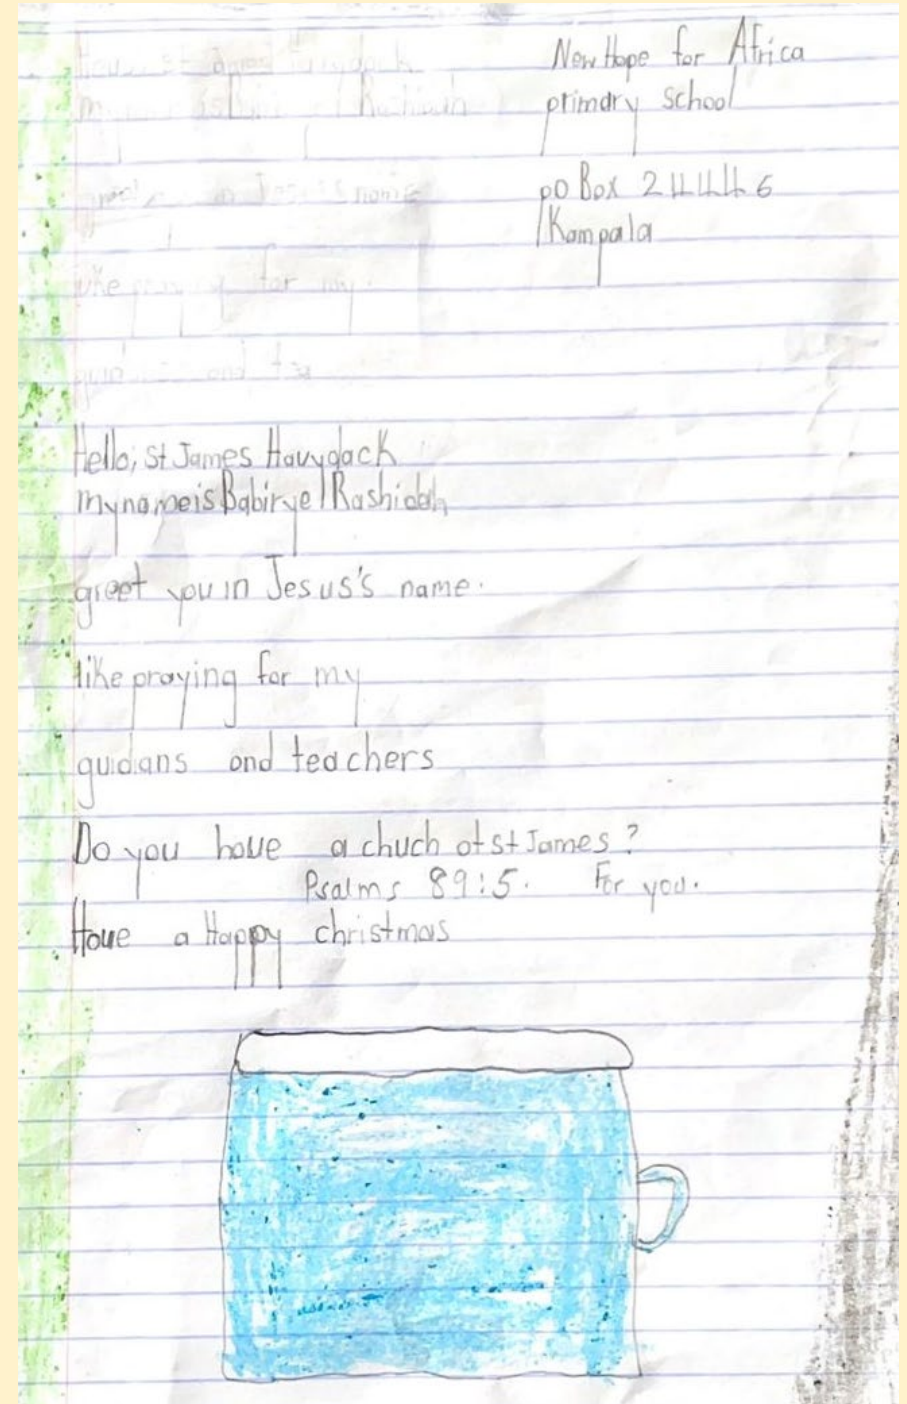 New Hope for Africa
primary school
po Box 24446
Kampala
Hello; st James Havydack
my name is Babirye Rashidah
greet you in Jesus's name.
like praying for my
guidians and teachers
Do you have a chuch of st James?
Psalms 89:5. For you.
Have a Happy christmas